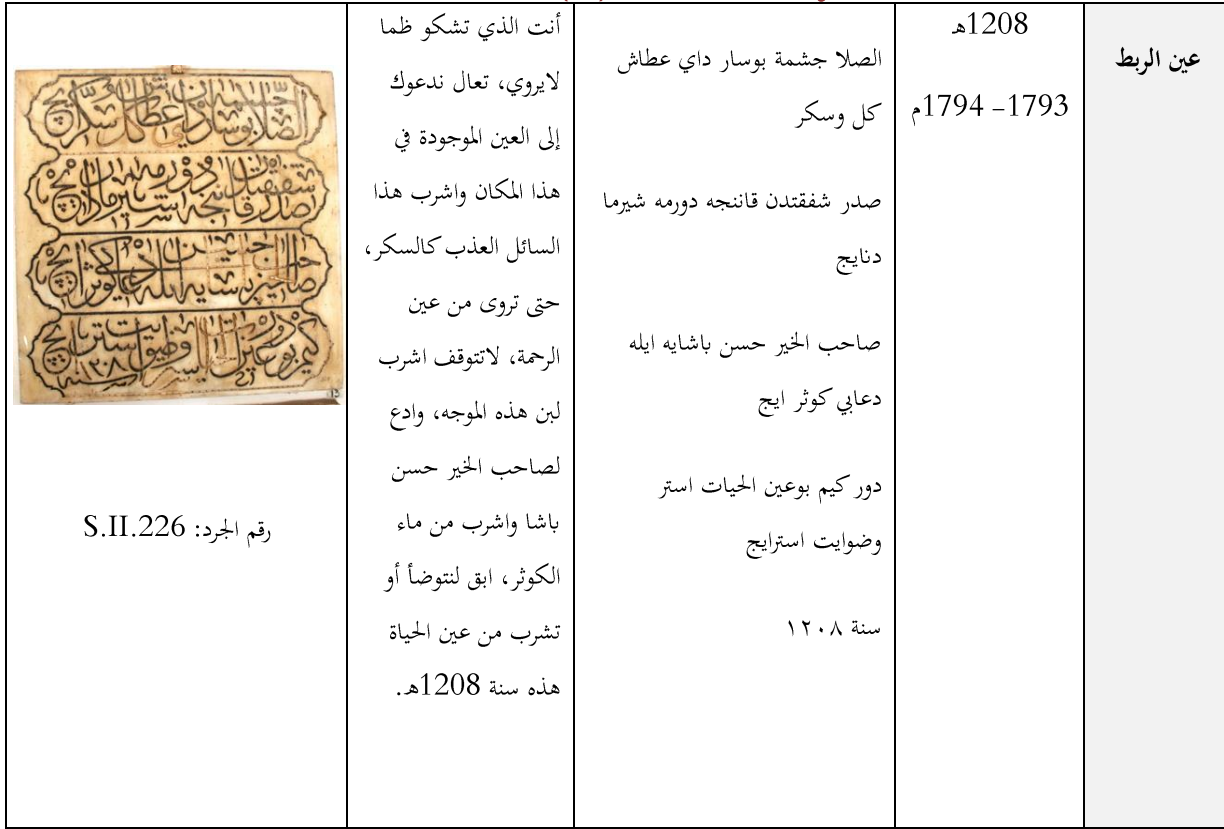 عين الربط
1208هـ
1793– 1794م
الصلا جشمة بوسار داي عطاش
كل وسكر
صدر شفقتدن قاننجه دورمه شيرما
دنايج
صاحب الخير حسن باشايه ايله
دعابي كوثر ايج
دور كيم بوعين الحيات استر
وضوايت استرايج
سنة ١٢٠٨
أنت الذي تشكو ظما
لايروي، تعال ندعوك
إلى العين الموجودة في
هذا المكان واشرب هذا
السائل العذب كالسكر،
حتى تروى من عين
الرحمة، لاتتوقف اشرب
لبن هذه الموجه، وادع
لصاحب الخير حسن
باشا واشرب من ماء
الكوثر، ابق لنتوضأ أو
تشرب من عين الحياة
هذه سنة 1208هـ.
رقم الجرد: S.II.226